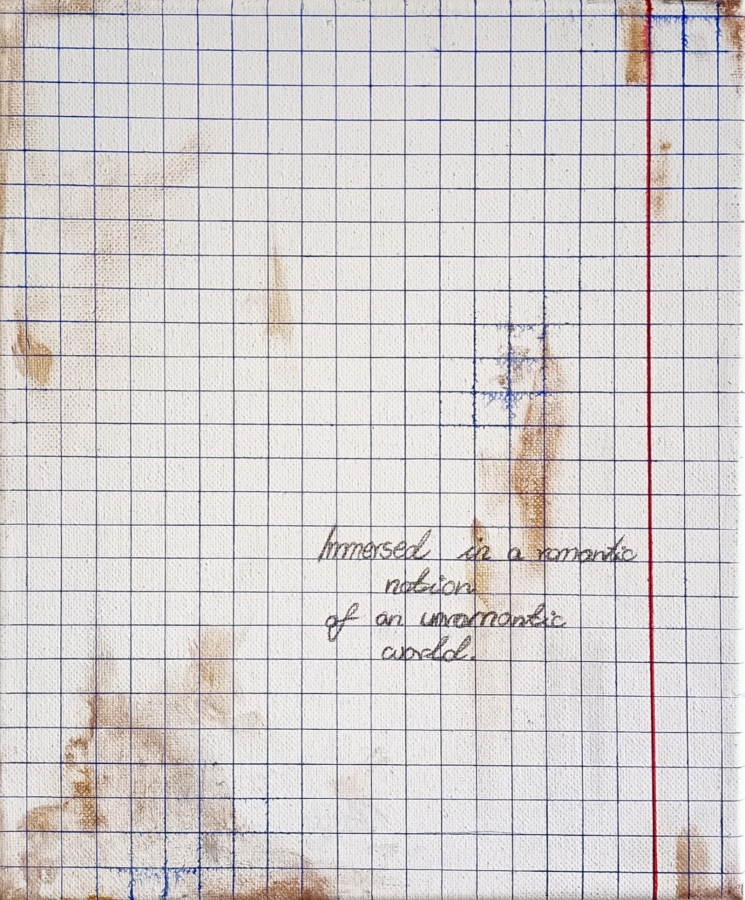 Immersed in a romantic
notion
of an unromantic
world.